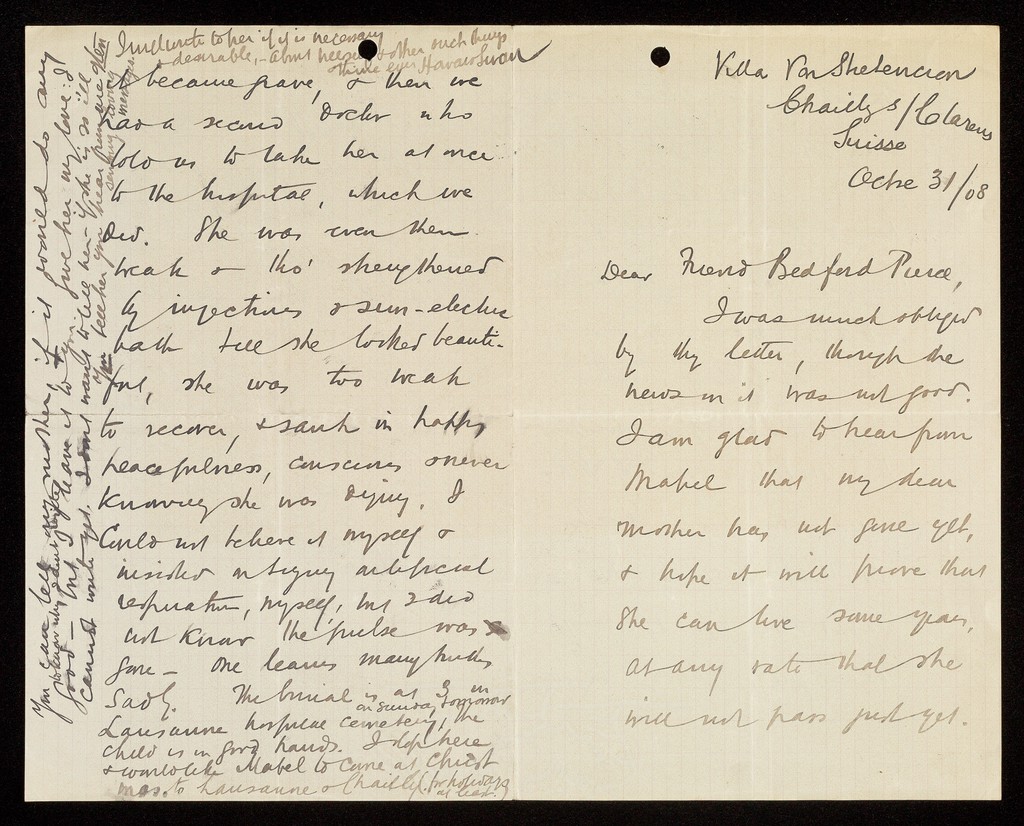 Villa Von Shelencron
Chailly s/Clarens
Suisse
Octre 31/08
Dear Friend Bedford Pierce,
I was much obliged
by thy letter, though the
news in it was not good.
I am glad to hear from
Mabel that my dear
mother has not gone yet,
& hope it will prove that
she can live some years,
at any rate that she
will not pass just yet.
& became grave, & then we
had a second Doctor who
told us to take her at once
to the hospital, which we
did. She was even then
weak & tho' strengthened
by injections & semi-electric
bath till she looked beauti-
ful, she was too weak
to recover, & sank in happy
peacefulness, conscious & never
knowing she was dying. I
could not believe it myself &
insisted on trying artificial
respiration, myself, but I did
not know the pulse was
gone - one learns many truths
sadly. The burial is at 3 in
on Sunday tomorrow
Lausanne hospital cemetery, the
child is in good hands. I stop here
& would like Mabel to come at Christ
mas. to Lausanne & Chailly (for holidays
at least.
You can tell my mother if it would do any
good - but I leave it to you. give her my love: I
cannot write yet. I don't want to tell her - if she is so ill
sending loving
messages.
I will write to her if it is necessary
& desirable, - about & other such things
thine ever Howard Swan